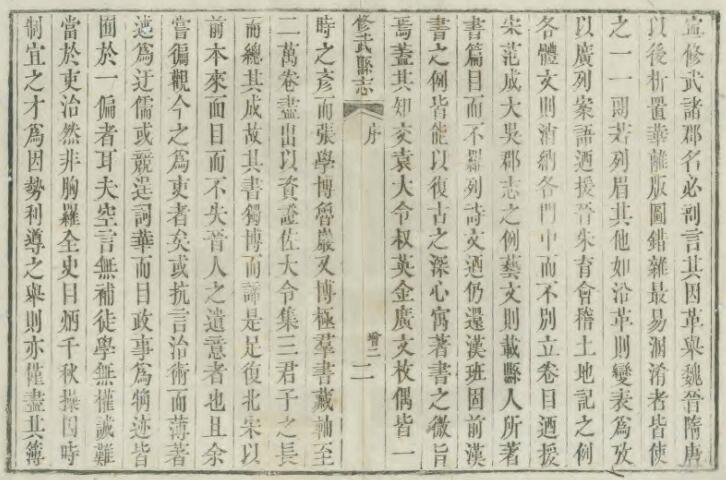 寧修武諸郡名必剖言其因革與魏晉隋唐
以後析置華離版圖錯雜最易溷淆者皆使
之一一朗若列眉其他如沿革則變表爲攷
以廣列案語迺援晉朱育會稽土地記之例
各體文則消納各門中而不別立卷目迺援
宋范成大吳郡志之例藝文則載縣人所著
書篇目而不羅列詩文迺仍還漢班固前漢
書之例皆能以復古之深心寓著書之微旨
焉蓋其知交袁大令叔英金廣文枚偶皆一
修武縣志
序
增二
二
時之彥而張學博魯巖又博極羣書藏軸至
二萬卷盡出以資證佐大令集三君子之長
而總其成故其書獨博而諦是足復北宋以
前本來面目而不失晉人之遺意者也且余
嘗徧觀今之爲吏者矣或抗言治術而薄著
述爲迂儒或競逞詞華而目政事爲犕迹皆
囿於一偏者耳夫空言無補徒學無權誠難
當於吏治然非胸羅全史目炳千秋操因時
制宜之才爲因勢利導之舉則亦僅盡其簿